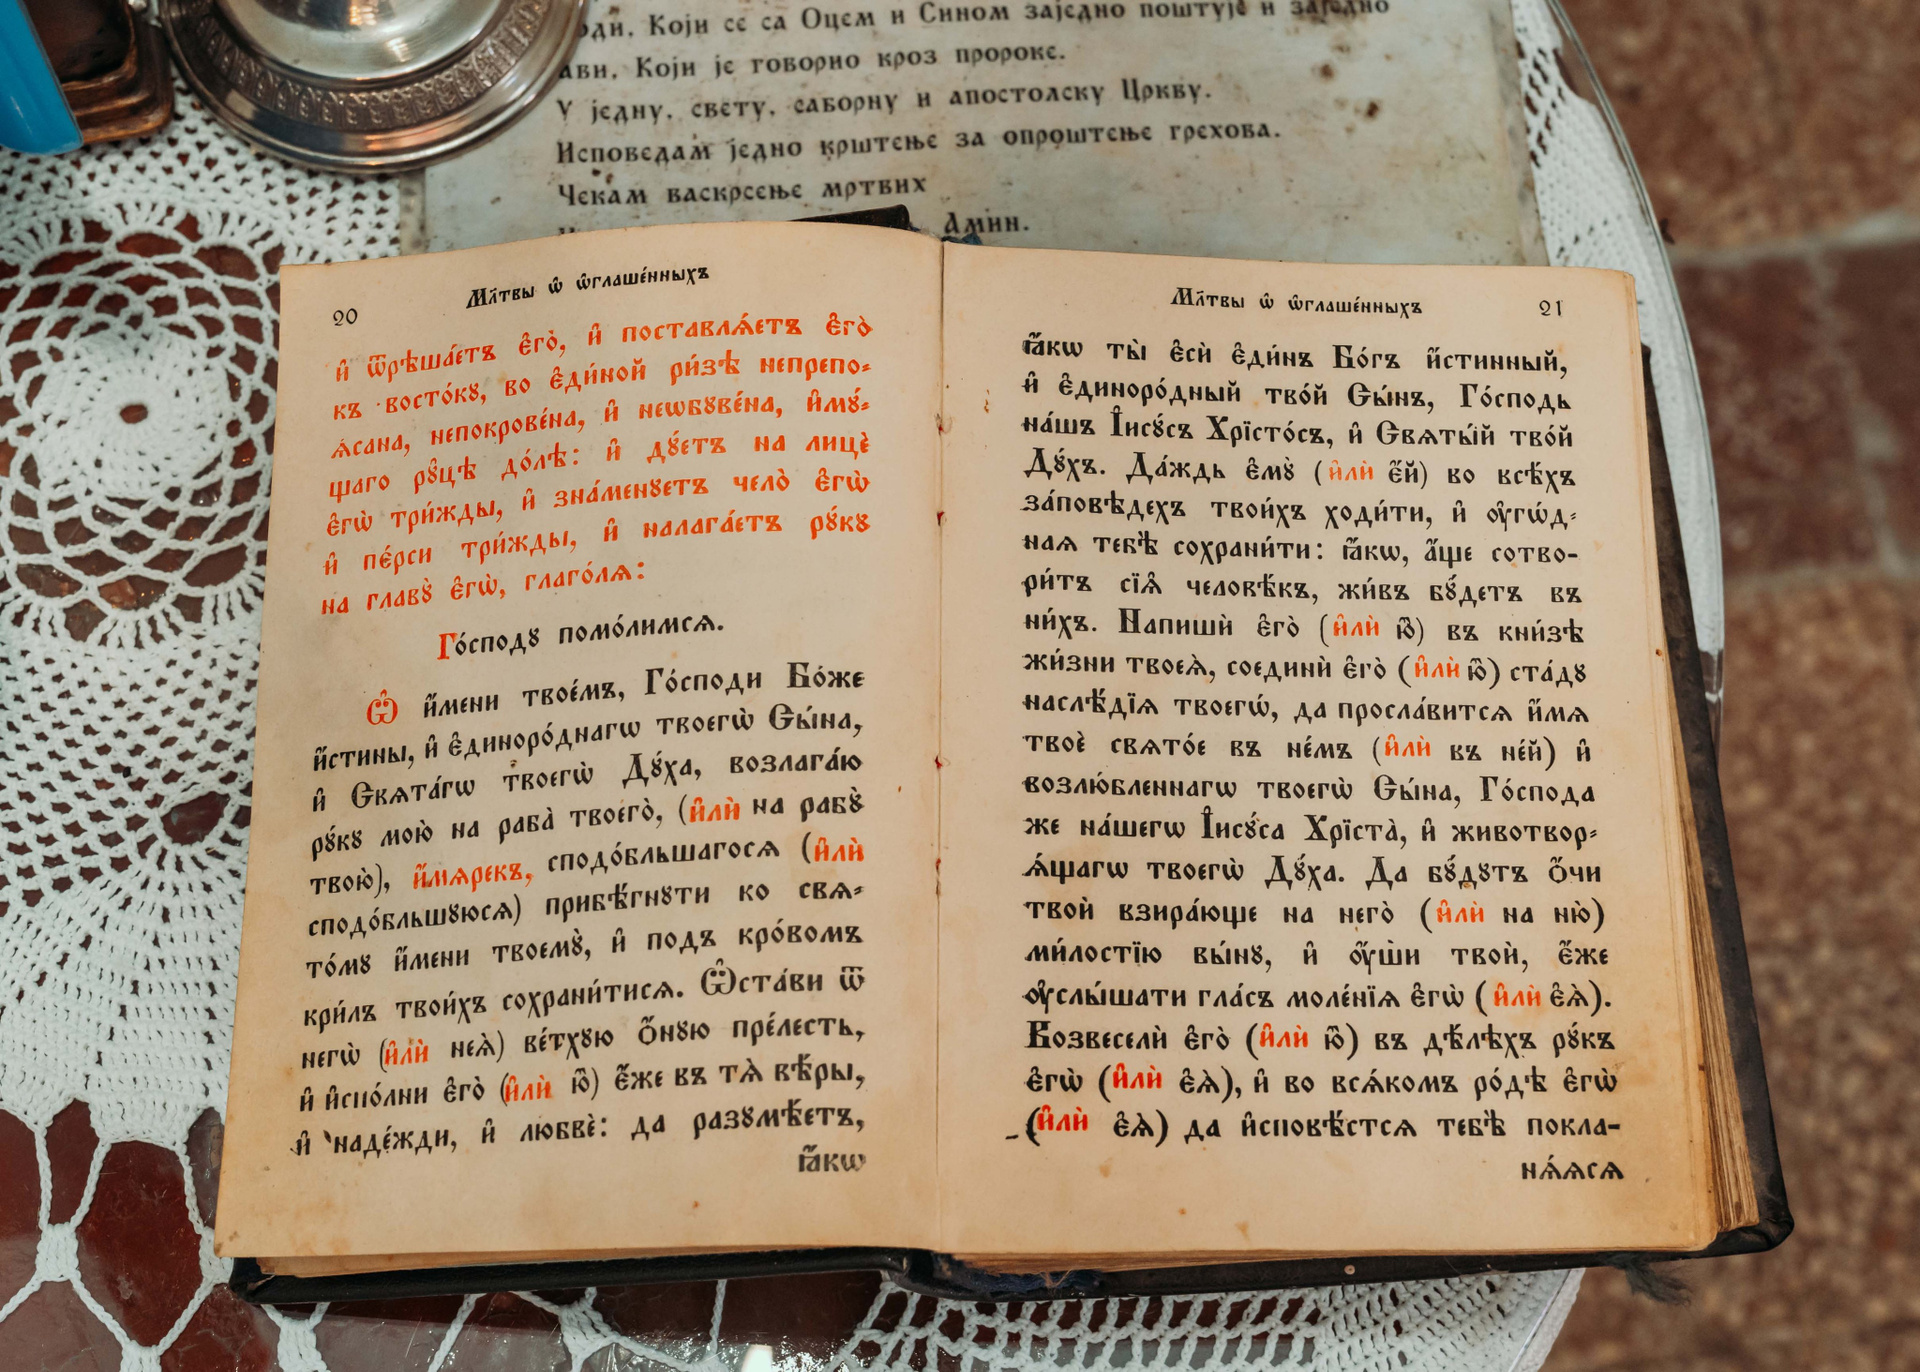 Који се са Оцем и Сином заједно поштује и заједно
Који је говорио кроз пророке.
У једну, свету, саборну и апостолску Цркву.
Исповедам једно крштење за опроштење грехова.
Чекам васкрсење мртвих
Амин.
20 Мл҃твы ѡ҆ ѡ҆глаше́нныхъ
и҆ ѿрѣша́етъ є҆го̀, и҆ поставлѧ́етъ є҆го̀
къ восто́кꙋ, во є҆ди́ной ри́зѣ непрепо-
ѧ́сана, непокрове́на, и҆ неѡбꙋве́на, и҆мꙋ́-
щаго рꙋ́цѣ до́лѣ: и҆ дꙋ́етъ на лицѐ
є҆гѡ̀ три́жды, и҆ зна́менꙋетъ чело̀ є҆гѡ̀
и҆ пе́рси три́жды, и҆ налага́етъ рꙋ́кꙋ
на главꙋ̀ є҆гѡ̀, глаго́лѧ:
Го́сподꙋ помо́лимсѧ.
Ѽ и҆́мени твое́мъ, Го́споди Бо́же
и҆́стины, и҆ є҆диноро́днагѡ твоегѡ̀ Сы́на,
и҆ Свѧта́гѡ твоегѡ̀ Дꙋ́ха, возлага́ю
рꙋ́кꙋ мою̀ на раба̀ твоего̀, (и҆лѝ на рабꙋ̀
твою̀), и҆́мѧрекъ, сподо́бльшагосѧ (и҆лѝ
сподо́бльшꙋюсѧ) прибѣ́гнꙋти ко свѧ-
то́мꙋ и҆́мени твоемꙋ̀, и҆ подъ кро́вомъ
кри́лъ твои́хъ сохрани́тисѧ. Ѽста́ви ѿ
негѡ̀ (и҆лѝ неѧ̀) ве́тхꙋю ѻ҆́нꙋю пре́лесть,
и҆ и҆спо́лни є҆го̀ (и҆лѝ ю҆̀) є҆́же въ тѧ̀ вѣ́ры,
и҆ наде́жди, и҆ любвѐ: да разꙋмѣ́етъ,
ꙗ҆́кѡ
Мл҃твы ѡ҆ ѡ҆глаше́нныхъ 21
ꙗ҆́кѡ ты̀ є҆сѝ є҆ди́нъ Бо́гъ и҆́стинный,
и҆ є҆диноро́дный тво́й Сы́нъ, Го́сподь
на́шъ І҆исꙋ́съ Хрїсто́съ, и҆ Свѧты́й тво́й
Дꙋ́хъ. Да́ждь є҆мꙋ̀ (и҆лѝ є҆́й) во всѣ́хъ
за́повѣдехъ твои́хъ ходи́ти, и҆ ᲂу҆гѡ́д-
наѧ тебѣ̀ сохрани́ти: ꙗ҆́кѡ, а҆́ще сотво-
ри́тъ сїѧ̑ человѣ́къ, жи́въ бꙋ́детъ въ
ни́хъ. Напишѝ є҆го̀ (и҆лѝ ю҆̀) въ кни́зѣ
жи́зни твоеѧ̀, соединѝ є҆го̀ (и҆лѝ ю҆̀) ста́дꙋ
наслѣ́дїѧ твоегѡ̀, да просла́витсѧ и҆́мѧ
твоѐ свѧто́е въ не́мъ (и҆лѝ въ не́й) и҆
возлю́бленнагѡ твоегѡ̀ Сы́на, Го́спода
же на́шегѡ І҆исꙋ́са Хрїста̀, и҆ животвор-
ѧ́щагѡ твоегѡ̀ Дꙋ́ха. Да бꙋ́дꙋтъ ѻ҆́чи
твоѝ взира́юще на него̀ (и҆лѝ на ню̀)
ми́лостїю вы́нꙋ, и҆ ᲂу҆́шѝ твоѝ, є҆́же
ᲂу҆слы́шати гла́съ моле́нїѧ є҆гѡ̀ (и҆лѝ є҆ѧ̀).
Возвеселѝ є҆го̀ (и҆лѝ ю҆̀) въ дѣ́лѣхъ рꙋ́къ
є҆гѡ̀ (и҆лѝ є҆ѧ̀), и҆ во всѧ́комъ ро́дѣ є҆гѡ̀
(и҆лѝ є҆ѧ̀) да и҆сповѣ́стсѧ тебѣ̀ покла-
нѧ́ѧсѧ